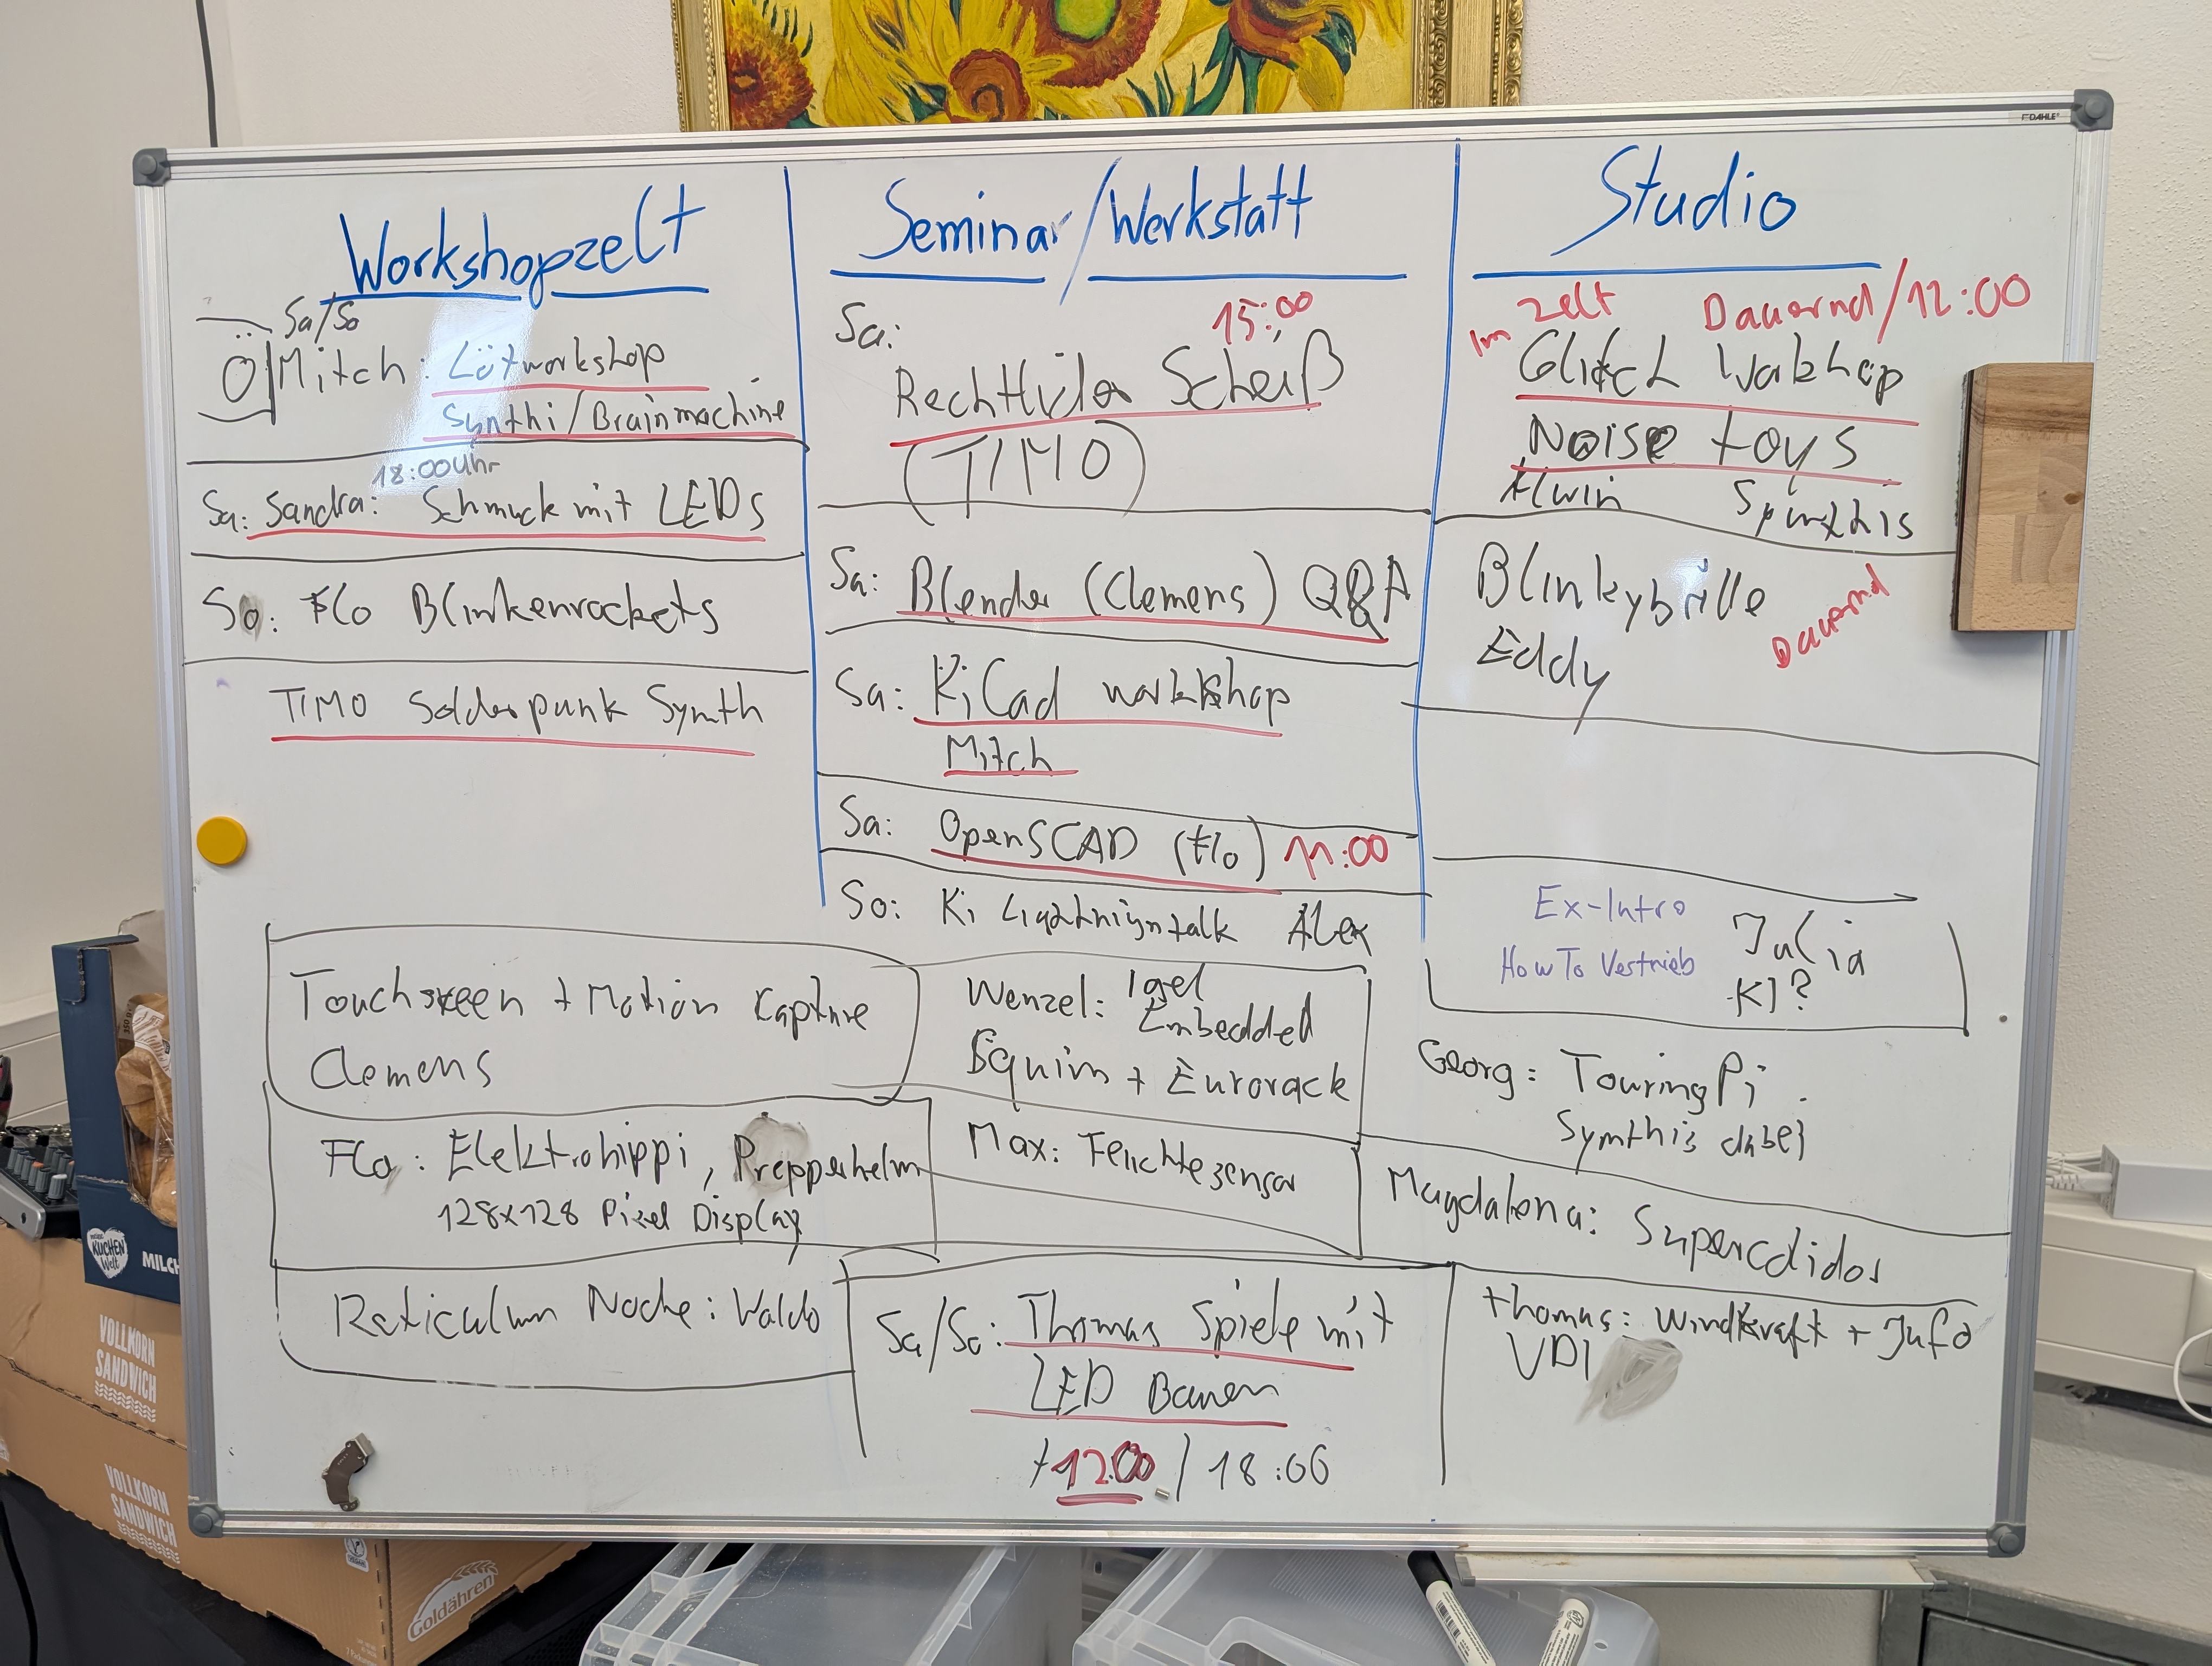 DAHLE
Workshopzelt
Sa/So
Mitch: Lötworkshop
Synthi/Brainmachine
18:00 Uhr
Sa: Sandra: Schmuck mit LEDs
So: Flo Blinkenrockets
TIMO Solderpunk Synth
Seminar/Werkstatt
Sa:
15:00
Scheiß
(TIMO)
Sa: Blender (Clemens) Q&A
Sa: KiCad workshop
Mitch
Sa: OpenSCAD (Flo) 11:00
So: Ki Alex
Studio
Im Zelt Dauernd/12:00
Glitch
Noise toys
Alwin
Blinkybrille
Eddy
Dauernd
Ex-Intro
How To Vertrieb
Julia
KI?
Touchskeen + Motion Capture
Clemens
Wenzel: Igel
Embedded
+ Eurorack
Georg: TouringPi
Synthis dabei
Flo: Elektrohippi, Prepperhelm
128x128 Pixel Display
Max: Feuchtesensor
Magdalena:
Reticulum Node: Waldo
Sa/So: Thomas Spiele mit
LED Bauen
12:00 / 18:00
Thomas: Windkraft + Jufo
VDI
KUCHEN
Welt
MILCH
VOLLKORN
SANDWICH
VOLLKORN
SANDWICH
Goldähren